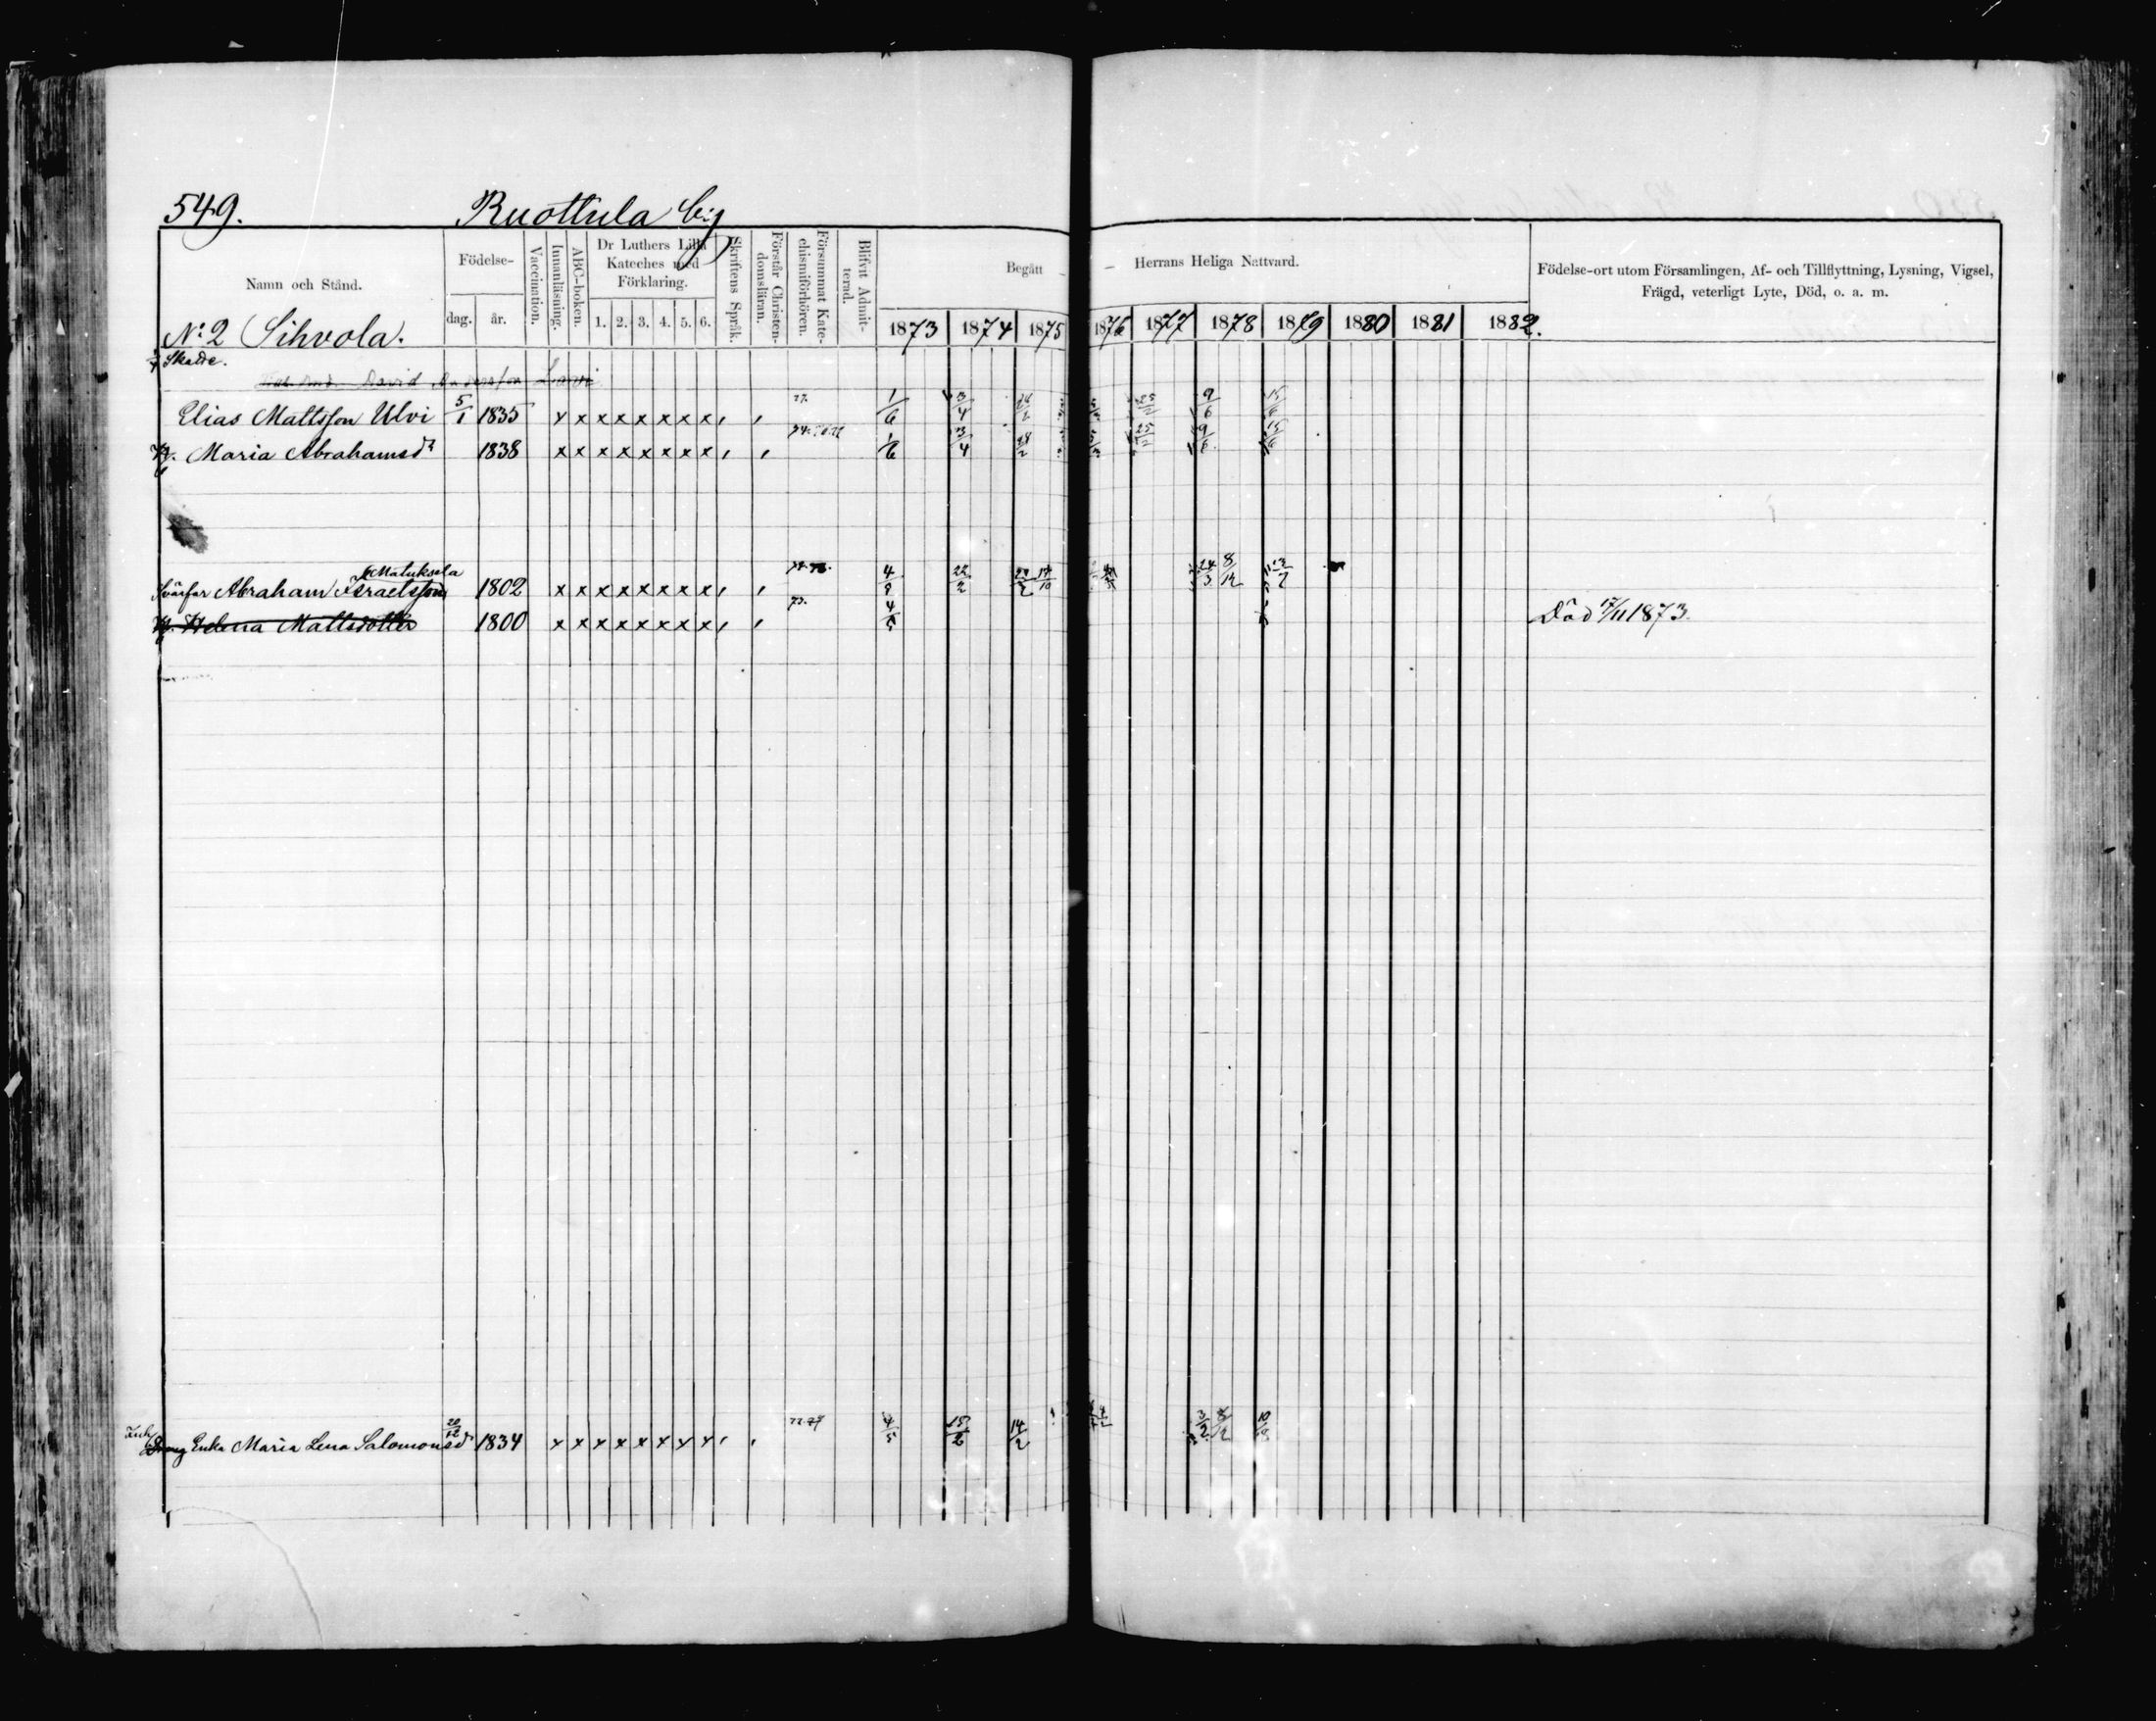 549. Ruottula by
Namn och Stånd.
Födelse-
dag. år.
Vaccination.
Innanläsning.
ABC-boken.
Dr Luthers Lilla Kateches med Förklaring.
1. 2. 3. 4. 5. 6.
Skriftens Språk.
Förstår Christen-domsläran.
Försummat Kate-chismiförhören.
Blifvit Admit-terad.
Begått Herrans Heliga Nattvard.
1873 1874 1875 1876 1877 1878 1879 1880 1881 1882.
Födelse-ort utom Församlingen, Af- och Tillflyttning, Lysning, Vigsel,
Frägd, veterligt Lyte, Död, o. a. m.
No 2 Sihvola.
Skatte.
David Andersson Lavi
Elias Mattsson Ulvi 5/1 1835 x x x x x x x x 77. 1/6 13/4 25/12 9/6 15/6
H. Maria Abrahamsdr 1838 x x x x x x x x 1/6 13/4 28/2 25/12 9/6 15/6
Matuksela
Svärfar Abraham Israelsson 1802 x x x x x x x x 22/2 17/10 24/3 8/12
H. Helena Mattsdotter 1800 x x x x x x x x 73. 4/5 Död 17/11 1873.
Inh. Dräng Enka Maria Lena Salomonsd 20/12 1834 x x x x x x x x 4/5 15/2 14/2 3/2